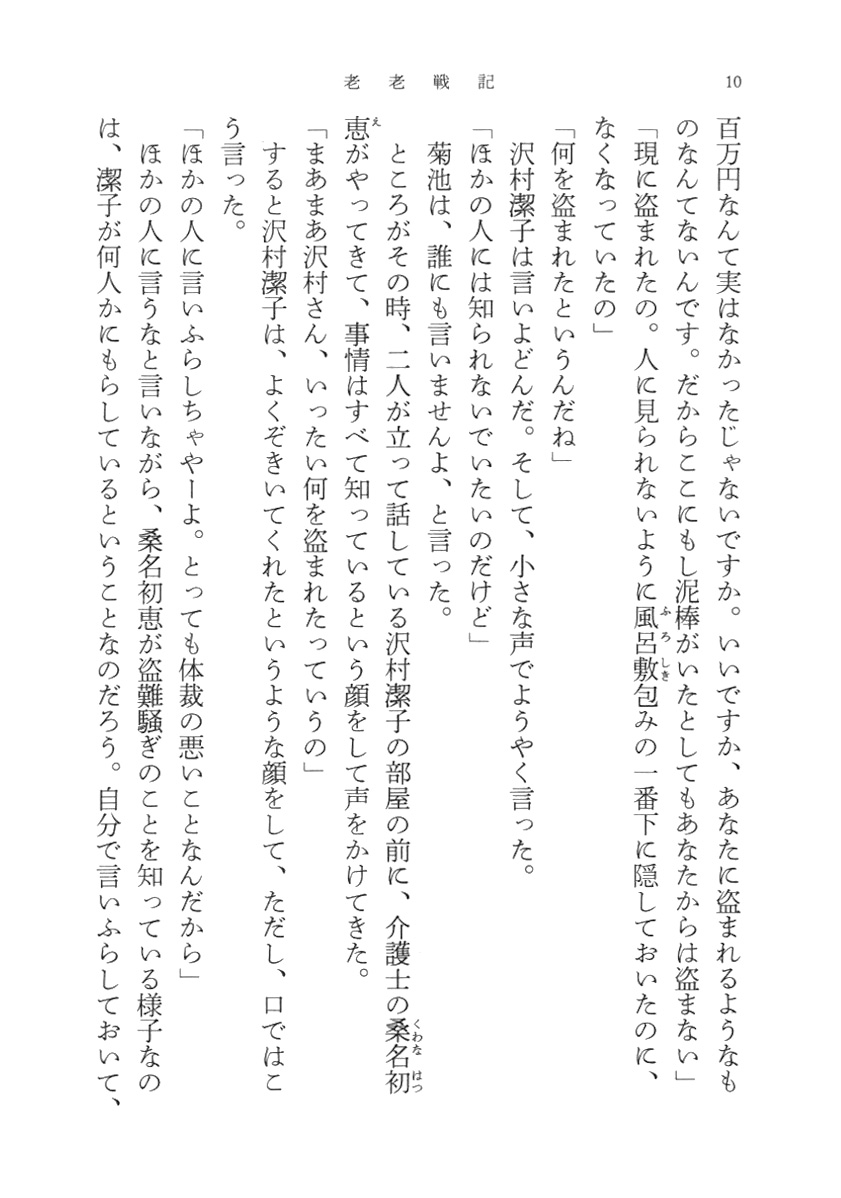 老老戦記
10
百万円なんて実はなかったじゃないですか。いいですか、あなたに盗まれるようなも
のなんてないんです。だからここにもし泥棒がいたとしてもあなたからは盗まない」
「現に盗まれたの。人に見られないように風呂敷包みの一番下に隠しておいたのに、
ふろしき
なくなっていたの」
「何を盗まれたというんだね」
沢村潔子は言いよどんだ。そして、小さな声でようやく言った。
「ほかの人には知られないでいたいのだけど」
菊池は、誰にも言いませんよ、と言った。
ところがその時、二人が立って話している沢村潔子の部屋の前に、介護士の桑名初
くわな はつ
恵がやってきて、事情はすべて知っているという顔をして声をかけてきた。
え
「まあまあ沢村さん、いったい何を盗まれたっていうの」
すると沢村潔子は、よくぞきいてくれたというような顔をして、ただし、口ではこ
う言った。
「ほかの人に言いふらしちゃやーよ。とっても体裁の悪いことなんだから」
ほかの人に言うなと言いながら、桑名初恵が盗難騒ぎのことを知っている様子なの
は、潔子が何人かにもらしているということなのだろう。自分で言いふらしておいて、